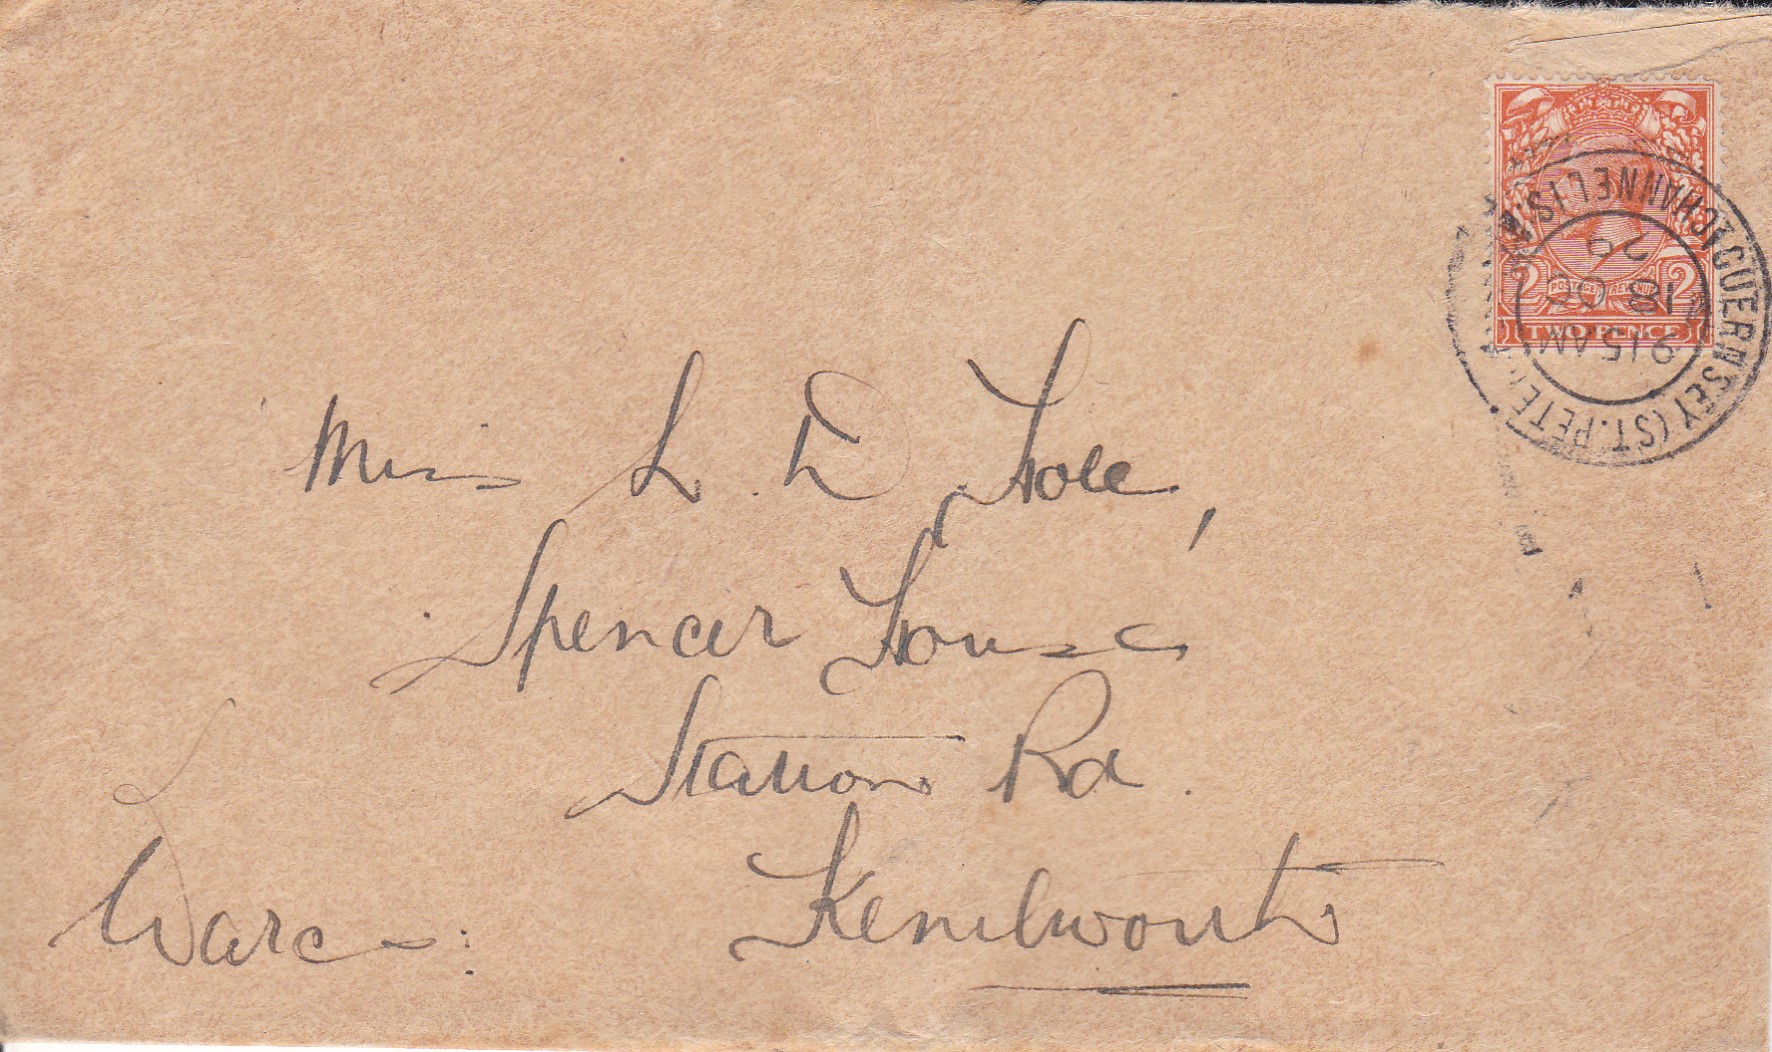 Miss L. D. Hole,
Spencer House
Station Rd.
Kenilworth
Warc:
2 POSTAGE REVENUE 2
TWO PENCE
GUERNSEY (ST. PETE
CHANNEL IS.
9 15 AM
18 OC
29